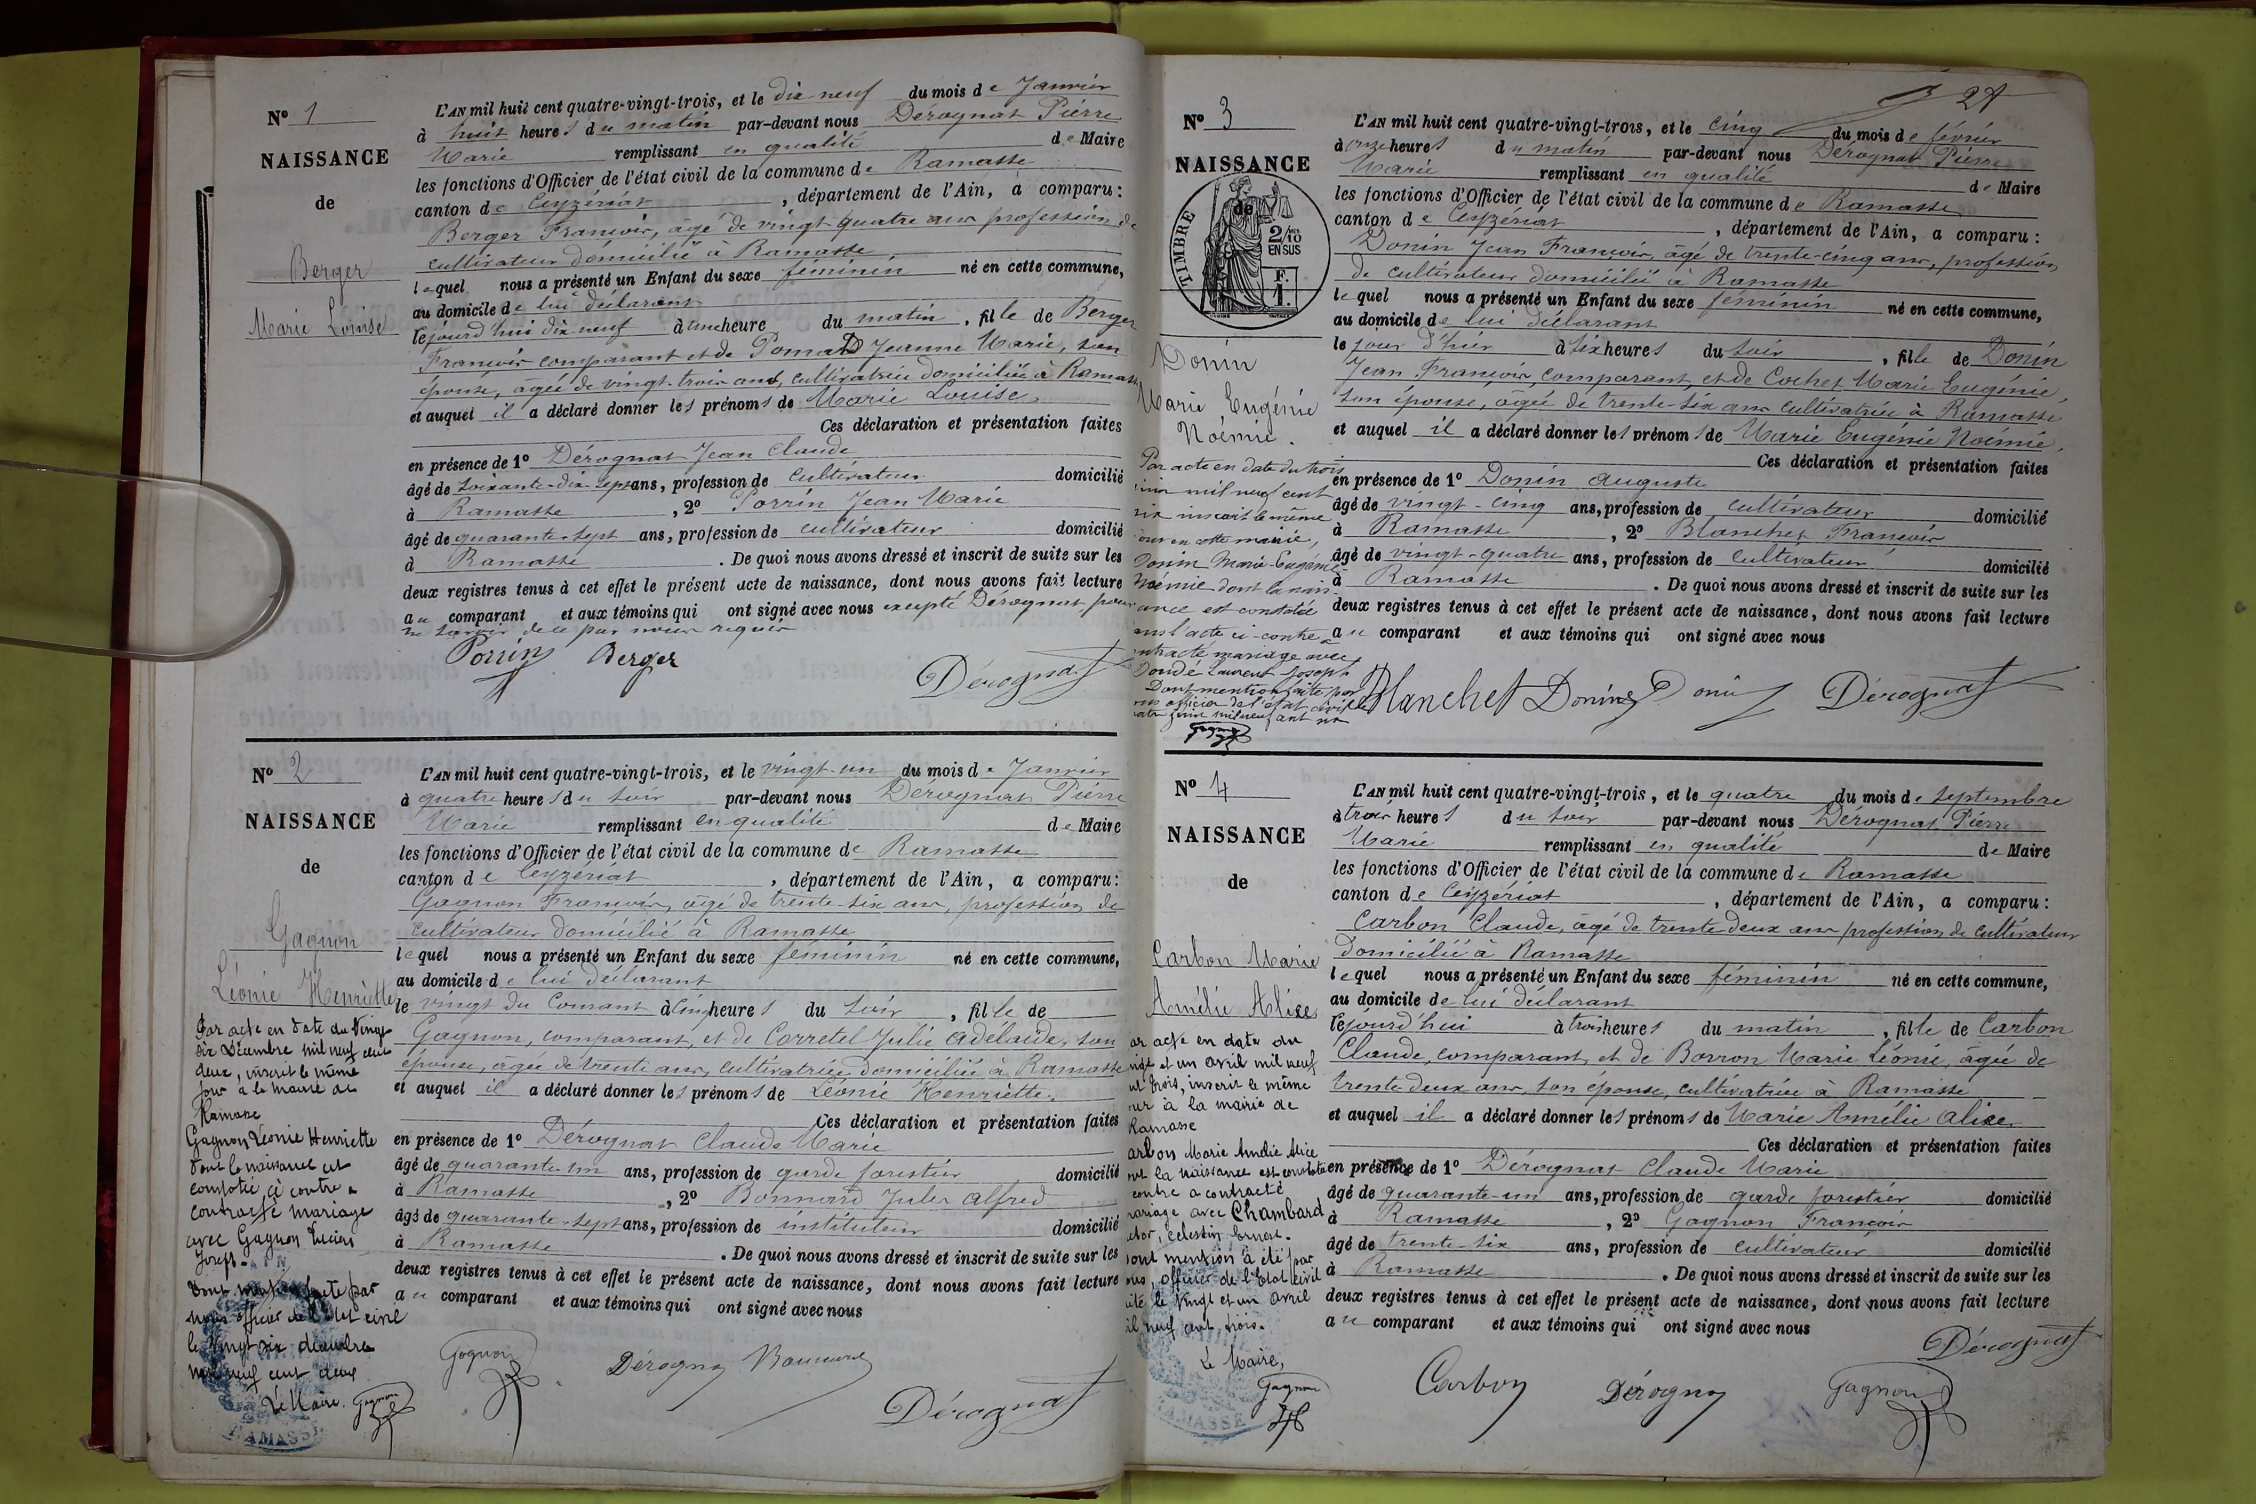 N° 1
NAISSANCE
de
Berger
Marie Louise
L'AN mil huit cent quatre-vingt-trois, et le dix neuf du mois de Janvier
à huit heures du matin par-devant nous Dérognat Pierre
Marie remplissant en qualité de Maire
les fonctions d'Officier de l'état civil de la commune de Ramasse
canton de Ceyzériat, département de l'Ain, a comparu:
Berger François, âgé de vingt-quatre ans profession de
cultivateur domicilié à Ramasse
lequel nous a présenté un Enfant du sexe féminin né en cette commune,
au domicile de lui déclarant
le jourd'hui dix neuf à une heure du matin, fille de Berger
François comparant et de Pomard Jeanne Marie, son
épouse, âgée de vingt-trois ans, cultivatrice domiciliée à Ramasse
et auquel il a déclaré donner les prénoms de Marie Louise.
Ces déclaration et présentation faites
en présence de 1° Dérognat Jean Claude
âgé de soixante-dix-sept ans, profession de cultivateur domicilié
à Ramasse, 2° Porrin Jean Marie
âgé de quarante-sept ans, profession de cultivateur domicilié
à Ramasse. De quoi nous avons dressé et inscrit de suite sur les
deux registres tenus à cet effet le présent acte de naissance, dont nous avons fait lecture
au comparant et aux témoins qui ont signé avec nous excepté Dérognat pour
ne savoir de ce par nous requis
Porrin Berger
Dérognat
N° 2
NAISSANCE
de
Gagnon
Léonie Henriette
Par acte en date du vingt
six Décembre mil neuf cent
deux, inscrit le même
jour à la mairie de
Ramasse
Gagnon Léonie Henriette
dont la naissance est
constatée ci contre a
contracté mariage
avec Gagnon Lucien
Joseph.
Dont mention faite par
nous officier de l'Etat civil
le vingt six décembre
mil neuf cent deux
Le Maire. Gagnon
RAMASSE
L'AN mil huit cent quatre-vingt-trois, et le vingt-un du mois de Janvier
à quatre heures du soir par-devant nous Dérognat Pierre
Marie remplissant en qualité de Maire
les fonctions d'Officier de l'état civil de la commune de Ramasse
canton de Ceyzériat, département de l'Ain, a comparu:
Gagnon François, âgé de trente-six ans, profession de
cultivateur domicilié à Ramasse
lequel nous a présenté un Enfant du sexe féminin né en cette commune,
au domicile de lui déclarant
le vingt du courant à cinq heures du soir, fille de
Gagnon, comparant, et de Corretel Julie Adélaïde, son
épouse, âgée de trente ans, cultivatrice domiciliée à Ramasse
et auquel il a déclaré donner les prénoms de Léonie Henriette.
Ces déclaration et présentation faites
en présence de 1° Dérognat Claude Marie
âgé de quarante-un ans, profession de garde forestier domicilié
à Ramasse, 2° Bonnard Jules Alfred
âgé de quarante-sept ans, profession de instituteur domicilié
à Ramasse. De quoi nous avons dressé et inscrit de suite sur les
deux registres tenus à cet effet le présent acte de naissance, dont nous avons fait lecture
au comparant et aux témoins qui ont signé avec nous
Gagnon Dérogna Bonnard
Dérognat
N° 3
NAISSANCE
de
TIMBRE
2/10
EN SUS
F.
1.
Donin
Marie Eugénie
Noémie.
Par acte en date du trois
juin mil neuf cent
six inscrit le même
jour en cette mairie,
Donin Marie Eugénie
Noémie dont la nais-
sance est constatée
dans l'acte ci-contre a
contracté mariage avec
Laurent Joseph
Dont mention faite par
nous officier de l'état civil le
quatre juin mil neuf cent six
Gagnon
L'AN mil huit cent quatre-vingt-trois, et le cinq du mois de février
à onze heures du matin par-devant nous Dérognat Pierre
Marie remplissant en qualité de Maire
les fonctions d'Officier de l'état civil de la commune de Ramasse
canton de Ceyzériat, département de l'Ain, a comparu:
Donin Jean François, âgé de trente-cinq ans, profession
de cultivateur domicilié à Ramasse
lequel nous a présenté un Enfant du sexe féminin né en cette commune,
au domicile de lui déclarant
le jour d'hier à six heures du soir, fille de Donin
Jean François, comparant, et de Cochet Marie Eugénie,
son épouse, âgée de trente-six ans cultivatrice à Ramasse
et auquel il a déclaré donner les prénoms de Marie Eugénie Noémie.
Ces déclaration et présentation faites
en présence de 1° Donin Auguste
âgé de vingt-cinq ans, profession de cultivateur domicilié
à Ramasse, 2° Blanchet François
âgé de vingt-quatre ans, profession de cultivateur domicilié
à Ramasse. De quoi nous avons dressé et inscrit de suite sur les
deux registres tenus à cet effet le présent acte de naissance, dont nous avons fait lecture
au comparant et aux témoins qui ont signé avec nous
Blanchet Donin Donin Dérognat
N° 4
NAISSANCE
de
Carbon Marie
Amélie Alice
ar acte en date du
vingt et un avril mil neuf
cent trois, inscrit le même
jour à la mairie de
Ramasse
Carbon Marie Amélie Alice
dont la naissance est constatée
contre a contracté
mariage avec Chambard
Celestin Ernest.
dont mention a été par
nous, officier de l'Etat civil
le vingt et un avril
mil neuf cent trois.
Le Maire,
Gagnon
RAMASSE
L'AN mil huit cent quatre-vingt-trois, et le quatre du mois de septembre
à trois heures du soir par-devant nous Dérognat Pierre
Marie remplissant en qualité de Maire
les fonctions d'Officier de l'état civil de la commune de Ramasse
canton de Ceyzériat, département de l'Ain, a comparu:
Carbon Claude, âgé de trente deux ans profession de cultivateur
domicilié à Ramasse
lequel nous a présenté un Enfant du sexe féminin né en cette commune,
au domicile de lui déclarant
le jourd'hui à trois heures du matin, fille de Carbon
Claude, comparant, et de Borron Marie Léonie, âgée de
trente deux ans, son épouse, cultivatrice à Ramasse
et auquel il a déclaré donner les prénoms de Marie Amélie Alice.
Ces déclaration et présentation faites
en présence de 1° Dérognat Claude Marie
âgé de quarante-un ans, profession de garde forestier domicilié
à Ramasse, 2° Gagnon François
âgé de trente-six ans, profession de cultivateur domicilié
à Ramasse. De quoi nous avons dressé et inscrit de suite sur les
deux registres tenus à cet effet le présent acte de naissance, dont nous avons fait lecture
au comparant et aux témoins qui ont signé avec nous
Dérognat
Carbon Dérogna Gagnon